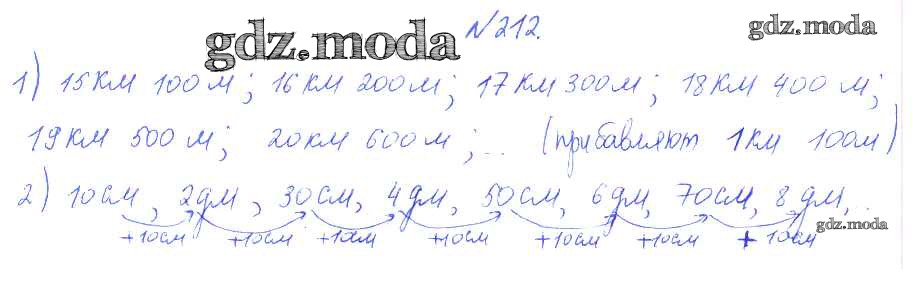 №212.
gdz.moda gdz.moda
1) 15км 100м; 16км 200м; 17км 300м; 18км 400м;
19км 500м; 20км 600м; ... (прибавляют 1км 100м)
2) 10см, 2дм, 30см, 4дм, 50см, 6дм, 70см, 8дм, ..
gdz.moda
+10см +10см +10см +10см +10см +10см + 10см